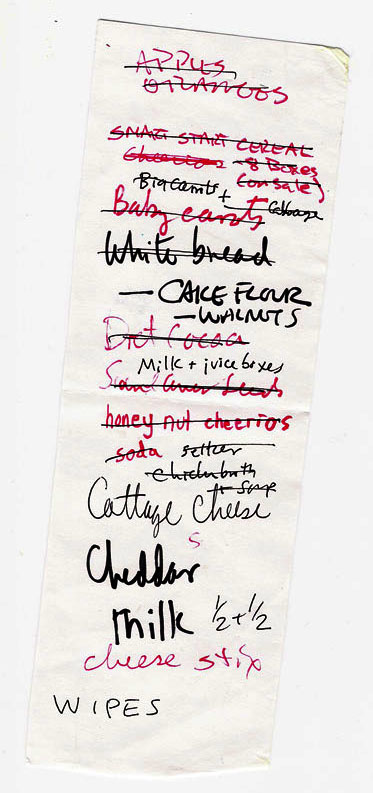 APPLES
ORANGES
SMART START CEREAL
Cheerios - 8 Boxes
(on sale)
Big carrots +
Cabbage
Baby carrots
White bread
— CAKE FLOUR
— WALNUTS
Diet Cocoa
Milk + juice boxes
Seeds
honey nut cheerios
soda seltzer
chicken broth
+ Soup
Cottage Cheese
s
Cheddar
milk 1/2 + 1/2
cheese stix
WIPES